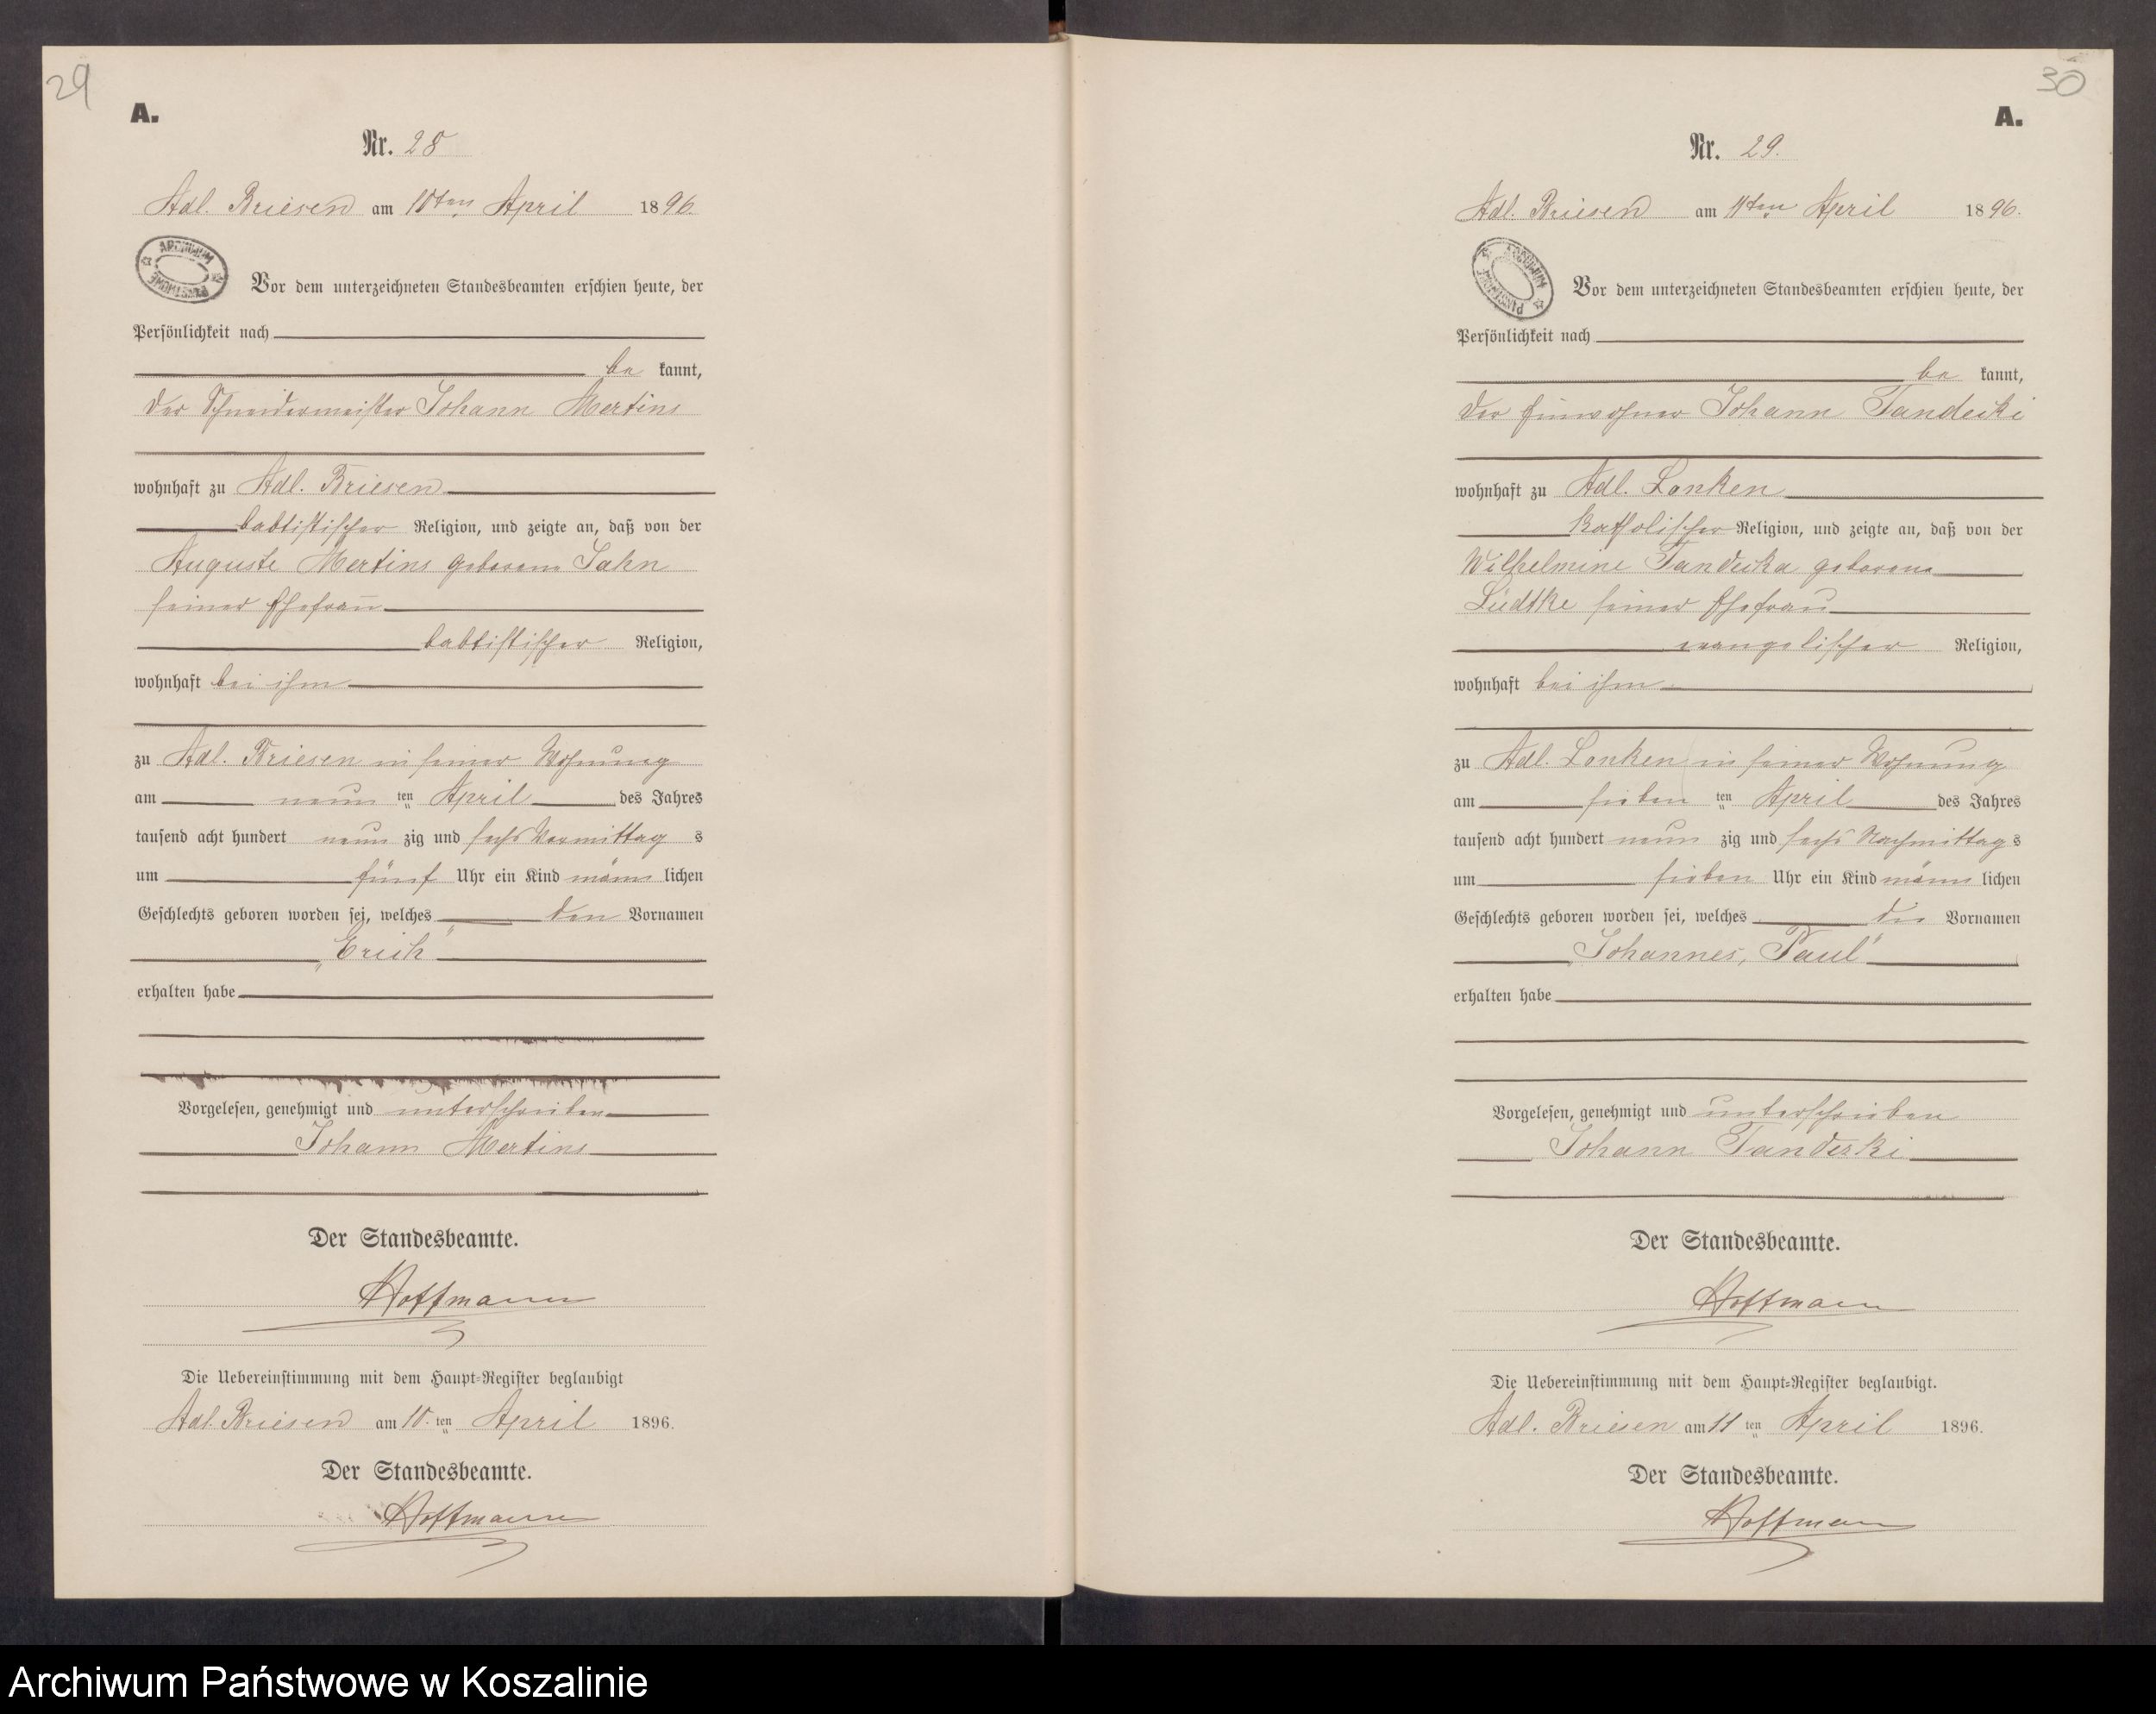 29
A.
Nr. 28
Adl. Briesen am 10ten April 1896.
ARCHIWUM PAŃSTWOWE
Vor dem unterzeichneten Standesbeamten erschien heute, der
Persönlichkeit nach
be kannt,
der Schneidermeister Johann Mertins
wohnhaft zu Adl. Briesen
babtistischer Religion, und zeigte an, daß von der
Auguste Mertins geborene Jahn
seiner Ehefrau
babtistischer Religion,
wohnhaft bei ihm
zu Adl. Briesen in seiner Wohnung
am neun ten April des Jahres
tausend acht hundert neun zig und sechs Vormittag s
um fünf Uhr ein Kind männ lichen
Geschlechts geboren worden sei, welches den Vornamen
„Erich“
erhalten habe
Vorgelesen, genehmigt und unterschrieben
Johann Mertins
Der Standesbeamte.
Hoffmann
Die Uebereinstimmung mit dem Haupt-Register beglaubigt
Adl. Briesen am 10. ten April 1896.
Der Standesbeamte.
Hoffmann
30
A.
Nr. 29.
Adl. Briesen am 11ten April 1896.
ARCHIWUM PAŃSTWOWE
Vor dem unterzeichneten Standesbeamten erschien heute, der
Persönlichkeit nach
be kannt,
der Einwohner Johann Tandecki
wohnhaft zu Adl. Lonken
katholischer Religion, und zeigte an, daß von der
Wilhelmine Tandecka geborene
Lüdtke seiner Ehefrau
evangelischer Religion,
wohnhaft bei ihm
zu Adl. Lonken in seiner Wohnung
am sieben ten April des Jahres
tausend acht hundert neun zig und sechs Nachmittag s
um sieben Uhr ein Kind männ lichen
Geschlechts geboren worden sei, welches die Vornamen
„Johannes, Paul“
erhalten habe
Vorgelesen, genehmigt und unterschrieben
Johann Tanderki
Der Standesbeamte.
Hoffmann
Die Uebereinstimmung mit dem Haupt-Register beglaubigt.
Adl. Briesen am 11 ten April 1896.
Der Standesbeamte.
Hoffmann
Archiwum Państwowe w Koszalinie